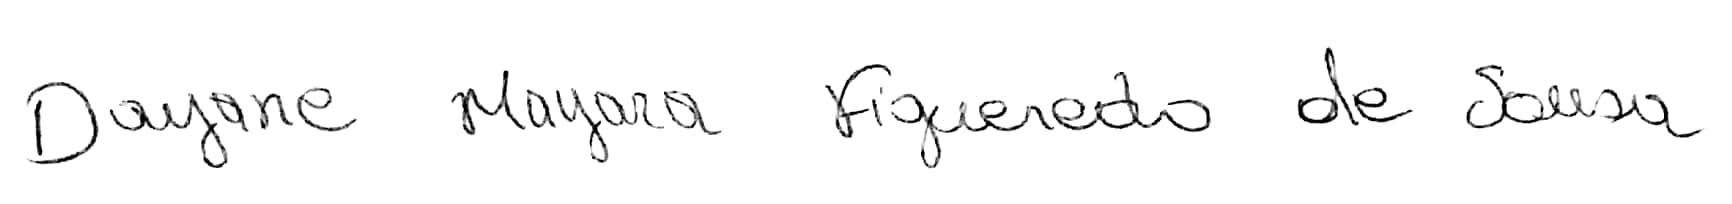 Dayane Mayara Figueredo de Sousa